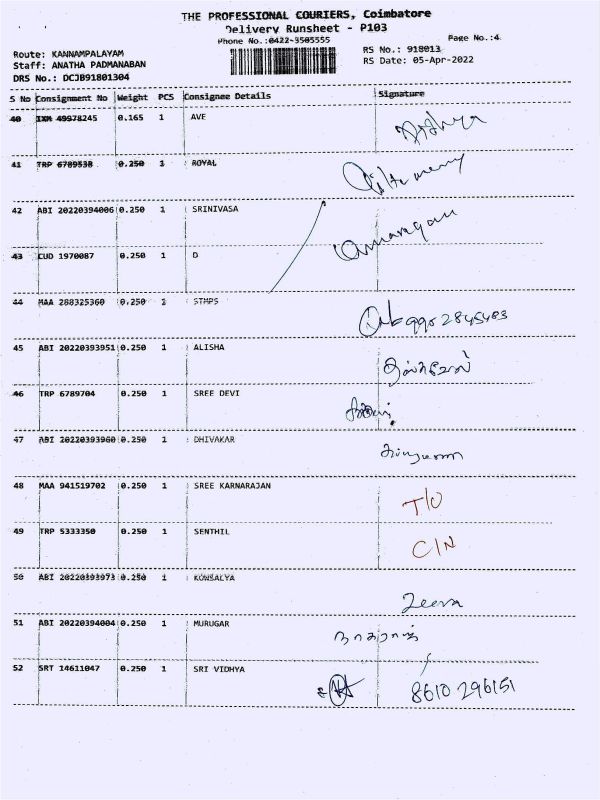 THE PROFESSIONAL COURIERS, Coimbatore
Delivery Runsheet - P103
Phone No.:0422-3505555
Page No.:4
Route: KANNAMPALAYAM
RS No.: 918013
Staff: ANATHA PADMANABAN
RS Date: 05-Apr-2022
DRS No.: DCJB91801304
S No Consignment No Weight PCS Consignee Details Signature
40 IXM 49978245 0.165 1 AVE
41 TRP 6789538 0.250 1 ROYAL
42 ABI 20220394006 0.250 1 SRINIVASA
43 CUD 1970087 0.250 1 D
44 MAA 288325360 0.250 1 STMPS
9902845483
45 ABI 20220393951 0.250 1 ALISHA
46 TRP 6789704 0.250 1 SREE DEVI
47 ABI 20220393960 0.250 1 DHIVAKAR
48 MAA 941519702 0.250 1 SREE KARNARAJAN
T/O
49 TRP 5333350 0.250 1 SENTHIL
C/N
50 ABI 20220393973 0.250 1 KOWSALYA
Jeeva
51 ABI 20220394004 0.250 1 MURUGAR
நாகராஜ்
52 SRT 14611047 0.250 1 SRI VIDHYA
8610 296151